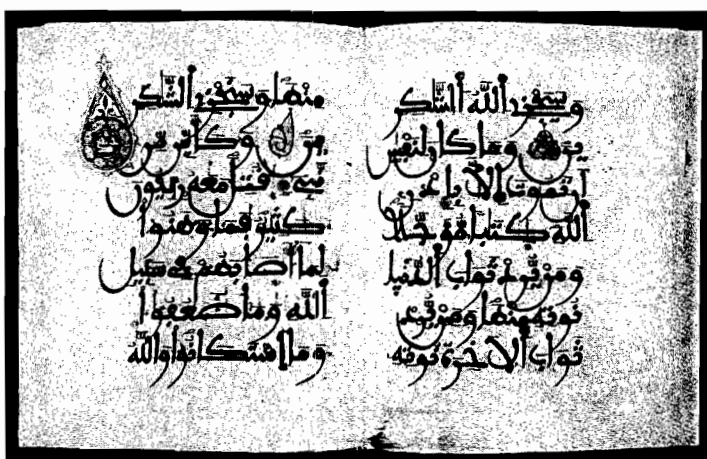 وسيجزي الله الشكر
ين وما كان لنفس
أن تموت إلا بإذن
الله كتبا مؤجلا
ومن يرد ثواب الدنيا
نؤته منها ومن يرد
ثواب الأخرة نؤته
منها وسنجزي الشكر
ين وكأين من
نبيء قتل معه ربيون
كثير فما وهنوا
لما أصابهم في سبيل
الله وما ضعفوا
وما استكانوا والله